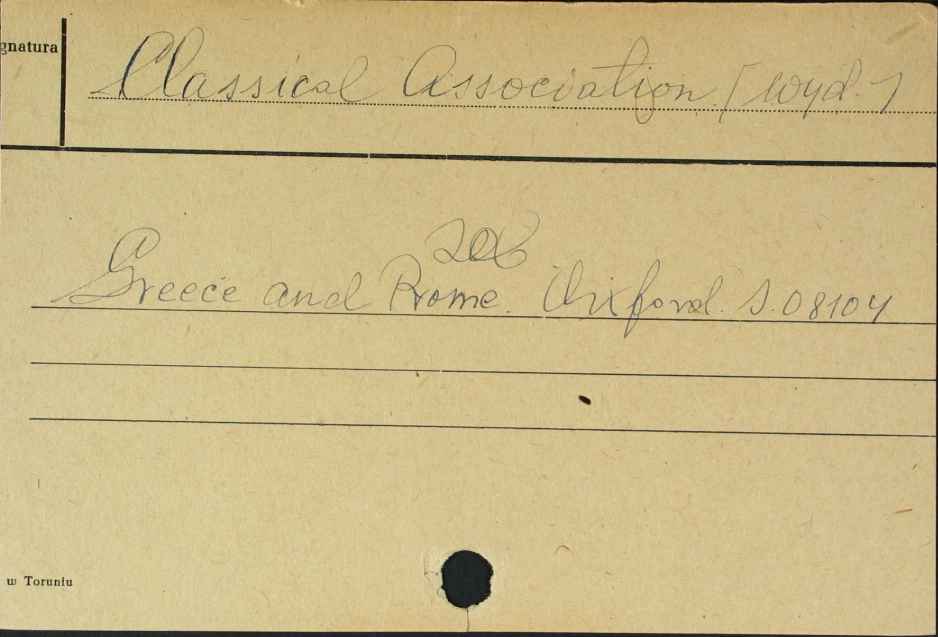 gnatura
Classical Association [wyd.]
zob.
Greece and Rome. Oxford. S.08104
w Toruniu